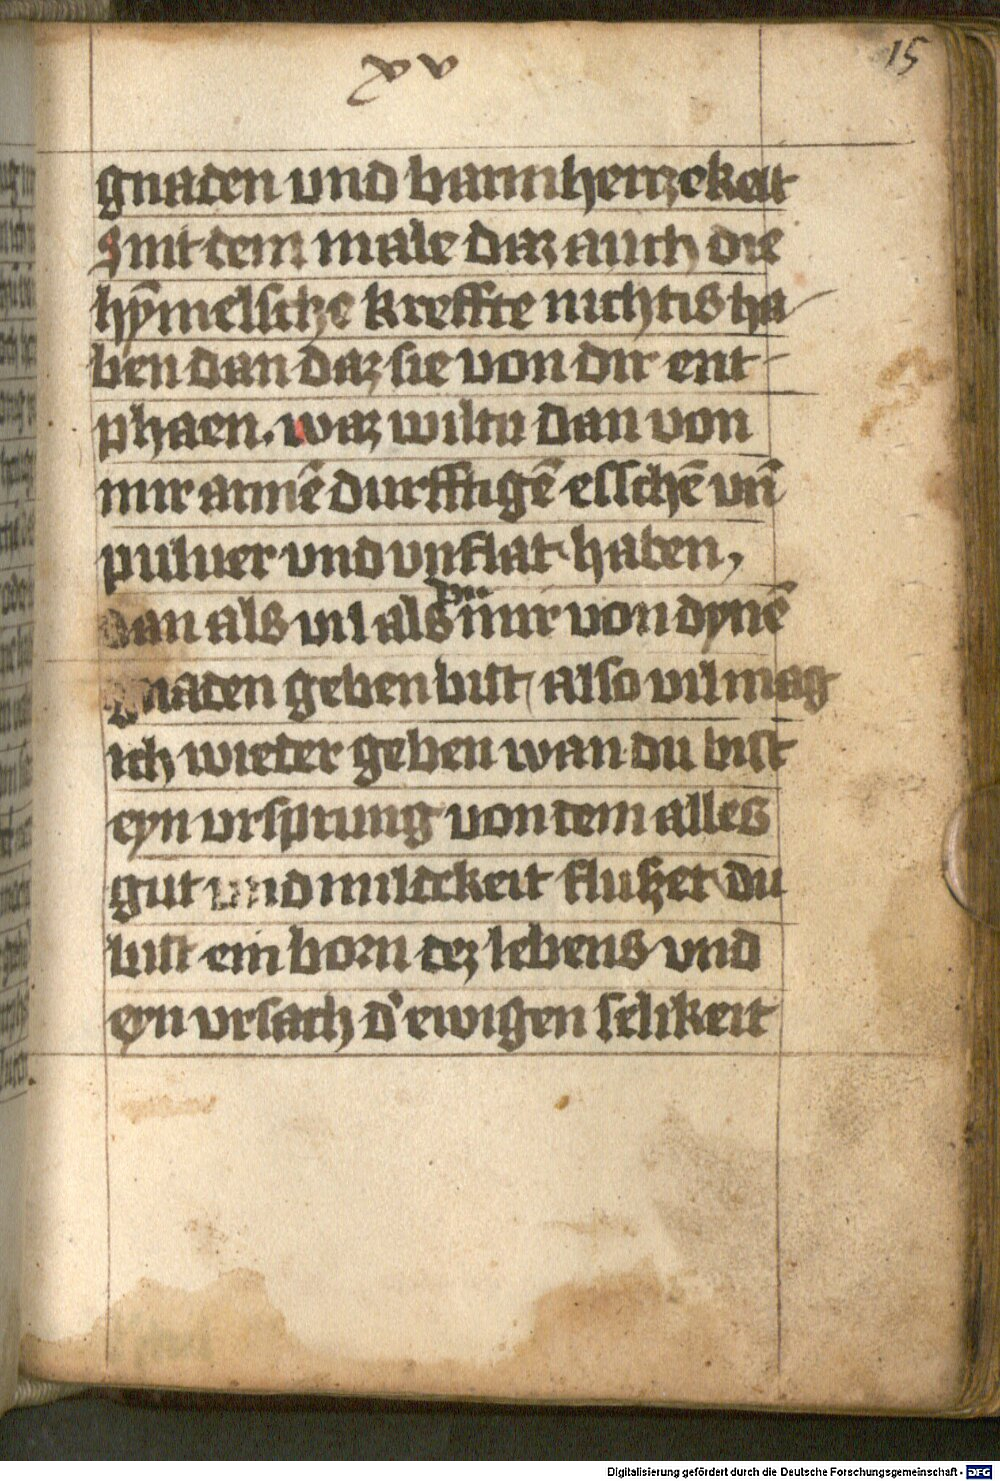 xv
15
gnaden und barmhertzekeit
Sint dem male daz auch die
hȳmelsche kreffte nichtis ha
ben dan daz sie von dir ent-
phaen. waz wiltu dan von
mir armē durfftigē esschē vn̄
puluer vnd vnflat haben,
dan als vil als du mir von dynē
gnaden geben bist, also vil mag
ich wieder geben wan du bist
eyn vrsprung von dem alles
gut und mildekeit fluszet du
bist ein born dez lebens vnd
eyn vrsach d' ewigen selikeit
Digitalisierung gefördert durch die Deutsche Forschungsgemeinschaft - DFG